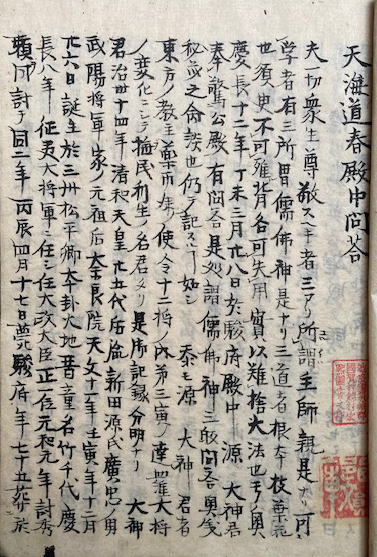 天海道春殿中問答
夫一切衆生尊敬スヘキ者三アリ所謂主師親是ナリ可
学者有三所謂儒佛神是ナリ三道者根本枝葉花
也須臾不可離背各可失用實以難捨大法也
慶長十二年丁未三月廿八日於駿府殿中源大神君
奉驚公殿有問答是 謂儒佛神三敎問答奥
秘 之命談也仍テ記スコト如シ 泰モ源大神君者
東方ノ教主藥師 使令十二将ノ内第三 羅大将
ノ変化ニシテ 民利生ノ名君ナリ是御記録分明ナリ大神
君治四十四年清和天皇廿五代后胤新田源氏廣忠ノ男
武陽将軍家ノ元祖后奈良院天文十一年壬寅年十二月
廿六日誕生於三州松平郷本卦火地晋童名竹千代慶
長八年征夷大将軍ニ任シ任大政大臣正一位元和元年討秀
頼 同二年丙辰四月十七日薨駿府年七十五葬於